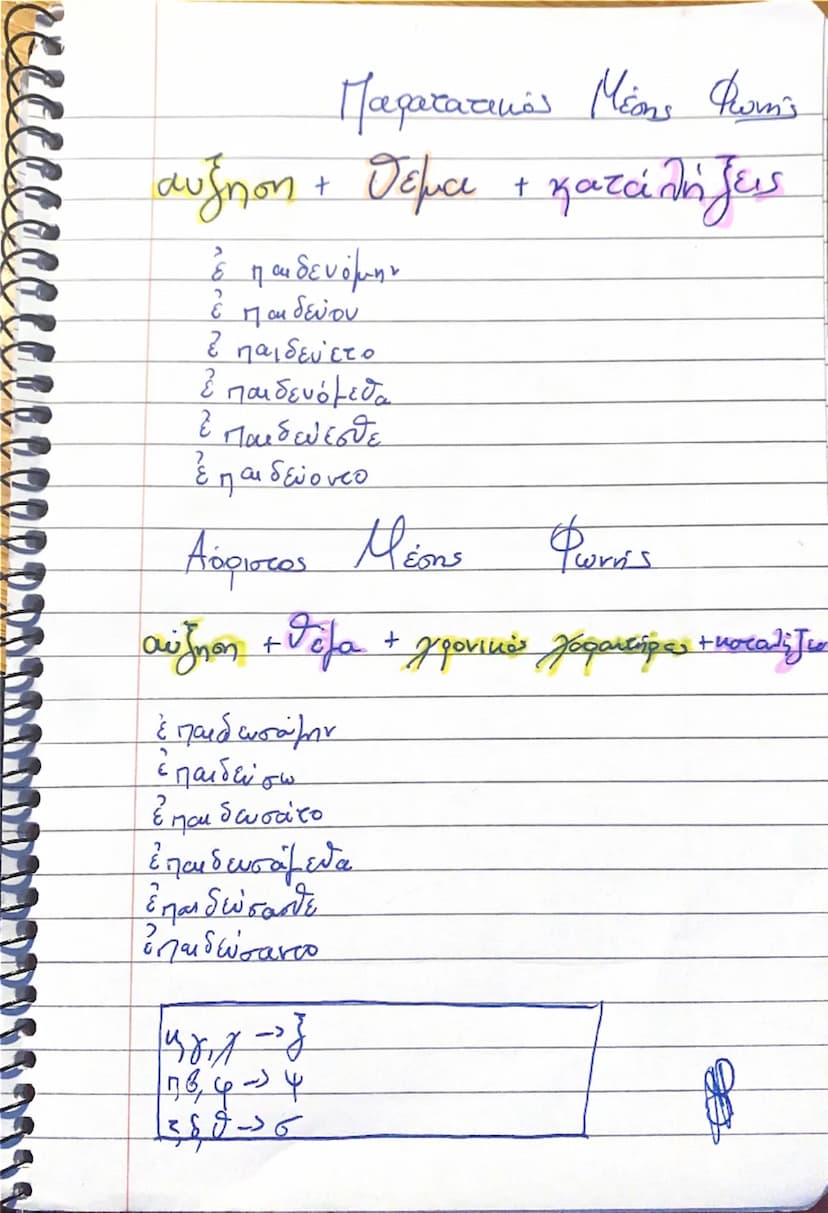 Παρατατικός Μέσης Φωνής
αυξηση + θέμα + καταλήξεις
ἐ παιδευόμην
ἐ παιδεύου
ἐ παιδεύετο
ἐ παιδευόμεθα
ἐ παιδεύεσθε
ἐ παιδεύοντο
Αόριστος Μέσης Φωνής
αύξηση + θέμα + χρονικός χαρακτήρας + καταλήξεις
ἐ παιδευσάμην
ἐ παιδεύσω
ἐ παιδευσάτο
ἐ παιδευσάμεθα
ἐ παιδεύσασθε
ἐ παιδεύσαντο
κ, γ, χ -> ξ
π, β, φ -> ψ
τ, δ, θ -> σ